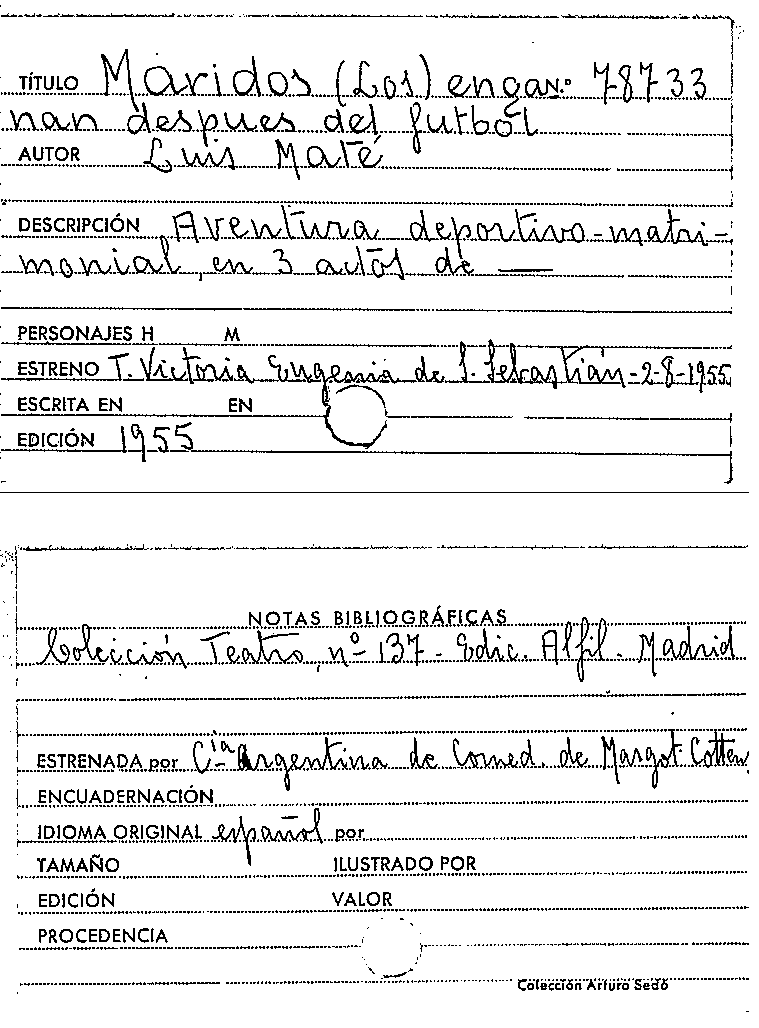 TÍTULO Maridos (Los) enga N.º 78733
nan despues del futbol
AUTOR Luis Maté
DESCRIPCIÓN Aventura deportivo-matri-
monial, en 3 actos de —
PERSONAJES H M
ESTRENO T. Victoria Eugenia de S. Sebastián-2-8-1955
ESCRITA EN EN
EDICIÓN 1955
NOTAS BIBLIOGRÁFICAS
Colección Teatro, nº 137 - Edic. Alfil. Madrid
ESTRENADA por C.ía Argentina de Comed. de Margot Cotten
ENCUADERNACIÓN
IDIOMA ORIGINAL español por
TAMAÑO ILUSTRADO POR
EDICIÓN VALOR
PROCEDENCIA
Colección Arturo Sedó